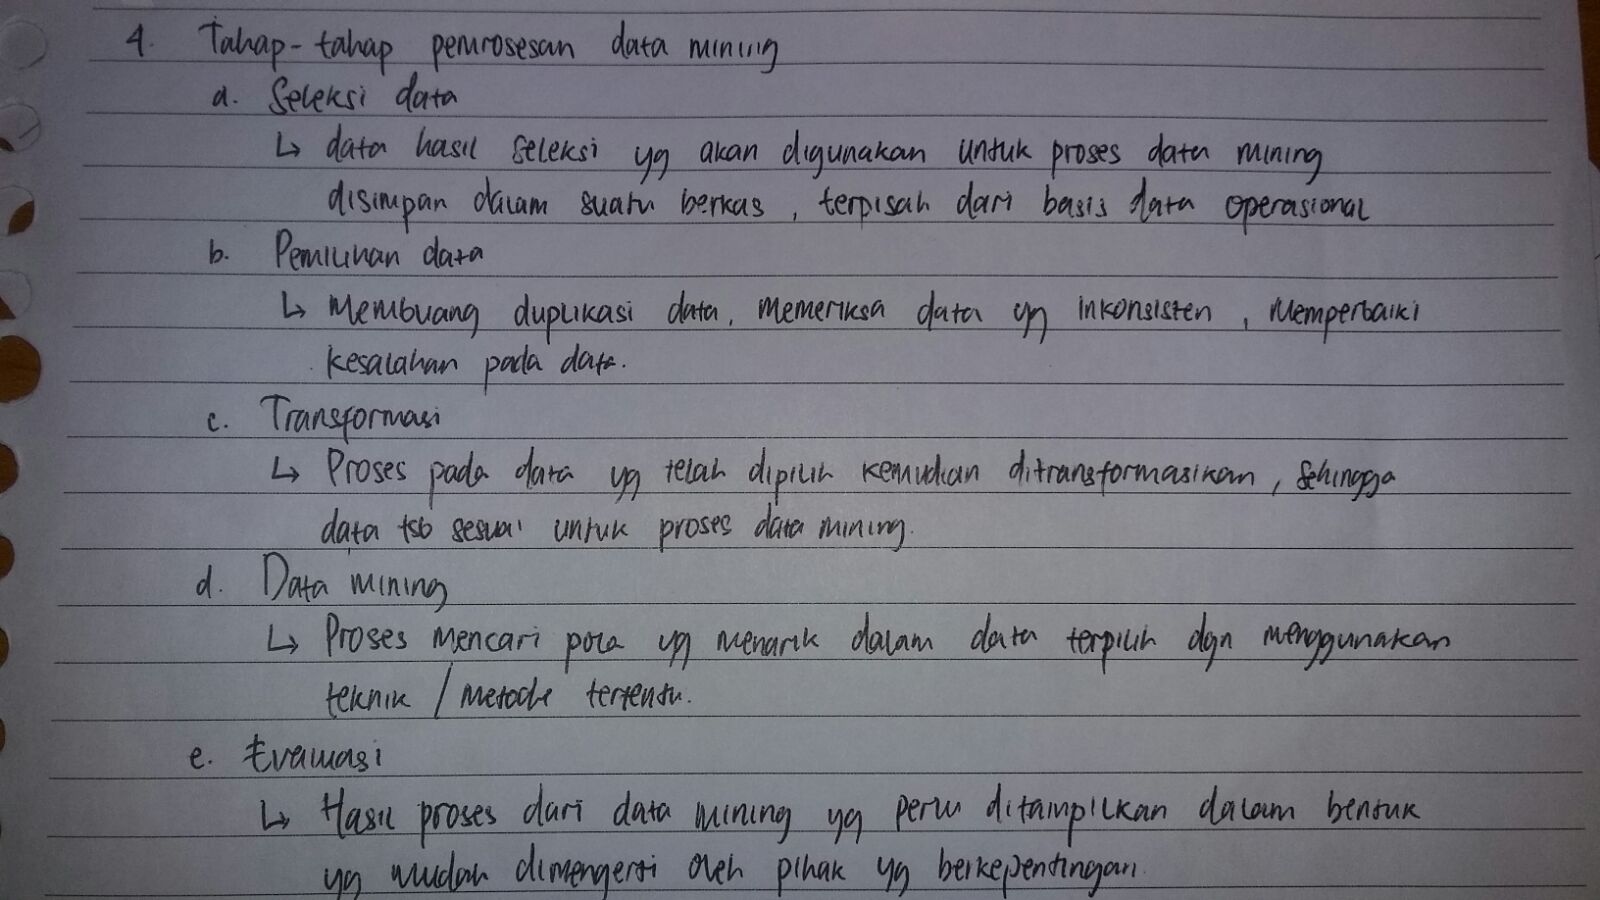 4. Tahap-tahap pemrosesan data mining
a. Seleksi data
↳ data hasil seleksi yg akan digunakan untuk proses data mining
disimpan dalam suatu berkas, terpisah dari basis data operasional
b. Pemilihan data
↳ Membuang duplikasi data, memeriksa data yg inkonsisten, memperbaiki
kesalahan pada data.
c. Transformasi
↳ Proses pada data yg telah dipilih kemudian ditransformasikan, sehingga
data tsb sesuai untuk proses data mining.
d. Data mining
↳ Proses mencari pola yg menarik dalam data terpilih dgn menggunakan
teknik / metode tertentu.
e. Evaluasi
↳ Hasil proses dari data mining yg perlu ditampilkan dalam bentuk
yg mudah dimengerti oleh pihak yg berkepentingan.